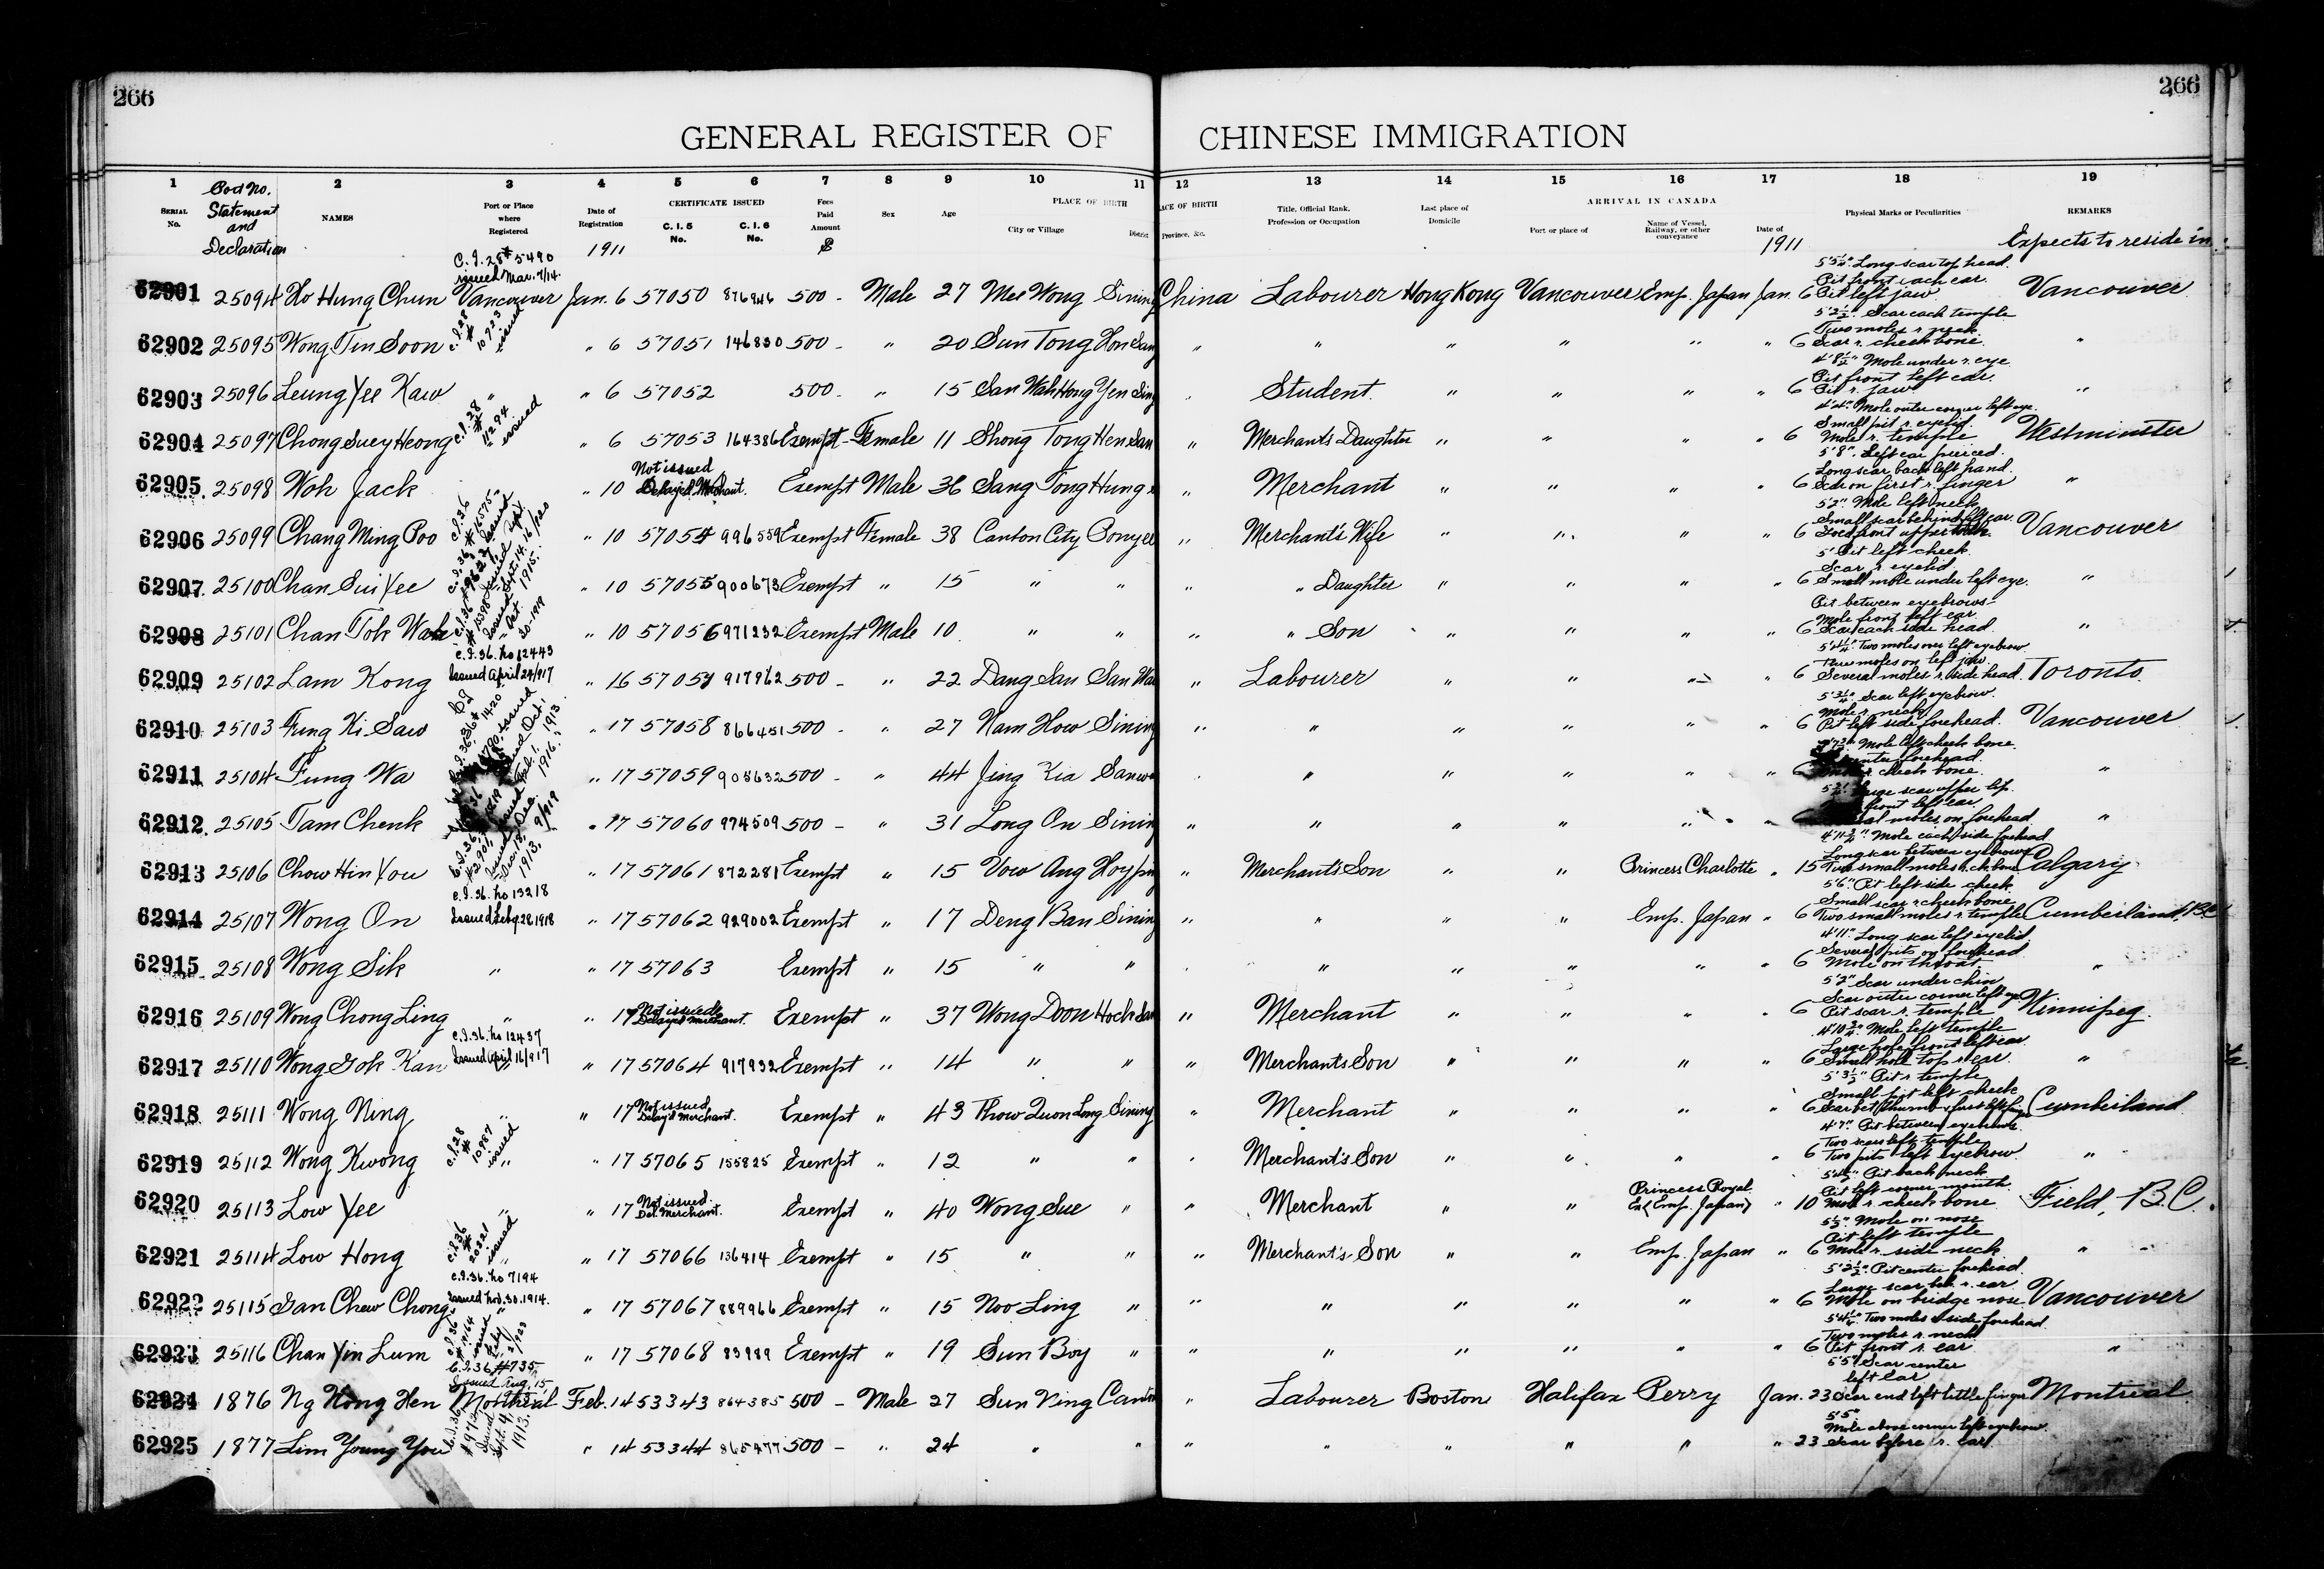 266
266
GENERAL REGISTER OF CHINESE IMMIGRATION
1 2 3 4 5 6 7 8 9 10 11 12 13 14 15 16 17 18 19
SERIAL No. Statement and Declaration NAMES Port or Place where Registered Date of Registration CERTIFICATE ISSUED C. I. 5 No. C. I. 6 No. Fees Paid Amount Sex Age PLACE OF BIRTH City or Village District PLACE OF BIRTH Province, &c. Title, Official Rank, Profession or Occupation Last place of Domicile ARRIVAL IN CANADA Port or place of Name of Vessel, Railway, or other conveyance Date of Physical Marks or Peculiarities REMARKS
1911 $ 1911 Expects to reside in
C.I.28 # 5490
issued Mar. 7/14.
5'5¼" Long scar top head.
Pit front each ear.
62901 25094 Ho Hung Chun Vancouver Jan. 6 57050 876946 500 - Male 27 Mee Wong Sining China Labourer Hong Kong Vancouver Emp. Japan Jan. 6 Pit left jaw Vancouver
C.I.28 # 10723 issued
5'2½" Scar each temple
Two moles r. neck
62902 25095 Wong Tin Soon " 6 57051 146830 500 - " 20 Sun Tong Hon San " " " " " " 6 Scar r. cheek bone. "
4'8½" Mole under r. eye
Pit front left ear.
62903 25096 Leung Yee Kaw " " 6 57052 500 - " 15 San Wah Hong Yen Sing " Student " " " " 6 Pit r. jaw "
C.I.28 # 11294 issued
4'4" Mole outer corner left eye.
Small pit r. eyelid.
62904 25097 Chong Suey Heong " " 6 57053 164386 Exempt - Female 11 Shong Tong Hen San " Merchant's Daughter " " " " 6 Mole r. temple Westminster
5'8" Left ear pierced.
Long scar back left hand.
62905 25098 Woh Jack " 10 Not issued Delay'd Merchant. Exempt Male 36 Sang Tong Hung " Merchant " " " " 6 Scar on first r. finger "
5'2" Mole left neck
Small scar behind left ear.
62906 25099 Chang Ming Poo " 10 57054 996559 Exempt Female 38 Canton City Ponyee " Merchant's Wife " " " " 6 Vancouver
5' Pit left cheek.
Scar r. eyelid
62907 25100 Chan Sui Yee " 10 57055 900673 Exempt " 15 " " " " Daughter " " " " 6 Small mole under left eye. "
Pit between eyebrows
Mole front left ear.
62908 25101 Chan Tok Wah " 10 57056 971232 Exempt Male 10 " " " " Son " " " " 6 Scar each side head. "
C.I.36. No 12443
Issued April 24/917
5'4¼" Two moles over left eyebrow
Three moles on left jaw
62909 25102 Lam Kong " 16 57057 917962 500 - " 22 Dang San San Wa " Labourer " " " " 6 Several moles r. side head. Toronto
5'3¼" Scar left eyebrow.
Mole r. neck
62910 25103 Fung Ki Saw " 17 57058 866451 500 - " 27 Nam How Sining " " " " " " 6 Pit left side forehead. Vancouver
Mole left cheek bone
center forehead.
62911 25104 Fung Wa " 17 57059 908632 500 - " 44 Jing Kia Sanw " " " " " " 6 cheek bone. "
Large scar upper lip.
front left ear.
62912 25105 Tam Chenk " 17 57060 974509 500 - " 31 Long On Sining " " " " " " moles on forehead "
4'11¾" Mole each side forehead
Long scar between eyebrows
62913 25106 Chow Hin You " 17 57061 872281 Exempt " 15 Vow Ang Hoyping " Merchant's Son " " Princess Charlotte " 15 Two small moles r. ch. bone Calgary
C.I.36. No 13218
Issued Feby 28 1918
5'6" Pit left side cheek
Small scar r. cheek bone
62914 25107 Wong On " 17 57062 929002 Exempt " 17 Deng Ban Sining " " " " Emp. Japan " 6 Two small moles r. temple Cumberland, B.C.
4'11" Long scar left eyelid
Several pits on forehead
62915 25108 Wong Sik " " 17 57063 Exempt " 15 " " " " " " " " 6 Mole on throat "
5'2" Scar under chin
Scar outer corner left eye
62916 25109 Wong Chong Ling " " 17 Not issued Delay'd Merchant. Exempt " 37 Wong Doon Hock San " Merchant " " " " 6 Pit scar r. temple Winnipeg.
C.I.36. No 12437
Issued April 16/917
4'10¾" Mole left temple
Large hole front left ear
62917 25110 Wong Gok Kan " 17 57064 917932 Exempt " 14 " " " Merchant's Son " " " " 6 Small hole top r. ear "
5'3½" Pit r. temple
Small pit left cheek
62918 25111 Wong Ning " " 17 Not issued Delay'd Merchant. Exempt " 43 Thow Quon Long Sining " Merchant " " " " 6 Cumberland
C.I.28 # 10987 issued
4'7" Pit between eyebrows.
Two scars left temple
62919 25112 Wong Kwong " " 17 57065 155825 Exempt " 12 " " " Merchant's Son " " " " 6 Two pits left eyebrow. "
5'4½" Pit back neck
Pit left corner mouth
62920 25113 Low Yee " " 17 Not issued. Del. Merchant. Exempt " 40 Wong Sue " " Merchant " " Princess Royal Ex (Emp. Japan) " 10 Mole r. cheek bone Field, B.C.
C.I.36 # 20221 issued
5'½" Mole on nose
Pit left temple
62921 25114 Low Hong " " 17 57066 136414 Exempt " 15 " " " Merchant's Son " " Emp. Japan " 6 Mole r. side neck " "
C.I.36. No 7194
Issued Nov. 30. 1914.
5'2½" Pit center forehead.
Large scar beh. r. ear
62922 25115 Gan Chew Chong " " 17 57067 889966 Exempt " 15 Noo Ling " " " " " " " 6 Mole on bridge nose Vancouver
5'4¼" Two moles r. side forehead.
Two moles r. neck
62923 25116 Chan Yin Lum " 17 57068 83989 Exempt " 19 Sun Boy " " " " " " " 6 Pit front r. ear "
C.I.36 #735
Issued Aug. 15
5'5" Scar center
left ear
62924 1876 Ng Hong Hen Montreal Feb. 14 53343 864385 500 - Male 27 Sun Ning Canton " Labourer Boston Halifax Perry Jan. 23 Scar end left little finger Montreal
Sept. 4, 1913.
5'5"
Mole above corner left eyebrow.
62925 1877 Lim Young You " 14 53344 865477 500 - " 24 " " " " " " " " 23 Scar before r. ear